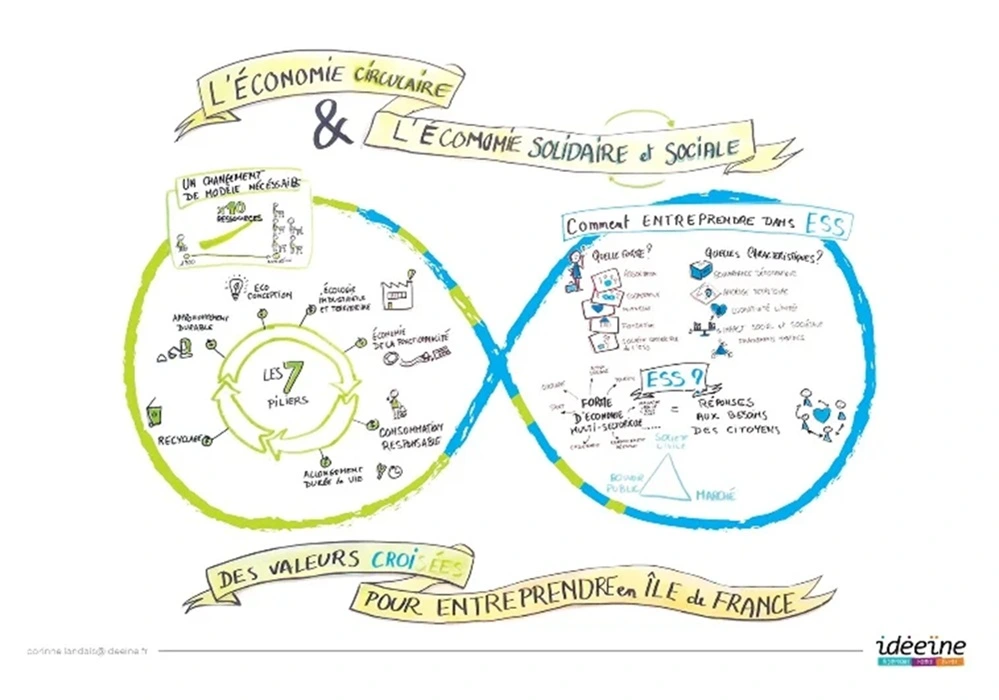 L'ÉCONOMIE CIRCULAIRE
&
L'ÉCOMOMIE SOLIDAIRE et SOCIALE
UN CHANGEMENT
DE MODÈLE NÉCESSAIRE
x10
RESSOURCES
ECO
CONCEPTION
ÉCOLOGIE
INDUSTRIELLE
ET TERRITORIALE
APPROVISIONNEMENT
DURABLE
ÉCONOMIE
DE LA FONCTIONNALITÉ
LES 7
PILIERS
CONSOMMATION
RESPONSABLE
RECYCLAGE
ALLONGEMENT
DURÉE de VIE
Comment ENTREPRENDRE DANS ESS
QUELLE FORME?
ASSOCIATION
FONDATION
QUELLES CARACTÉRISTIQUES?
GOUVERNANCE DÉMOCRATIQUE
LUCRATIVITÉ LIMITÉE
ESS?
FORME
D'ÉCONOMIE
MULTI-SECTORIELLE
= RÉPONSES
AUX BESOINS
DES CITOYENS
SOCIÉTÉ
CIVILE
POUVOIR
PUBLIC
MARCHÉ
DES VALEURS CROISÉES
POUR ENTREPRENDRE en ÎLE de FRANCE
corinne.landais@ideeine.fr
idéeïne